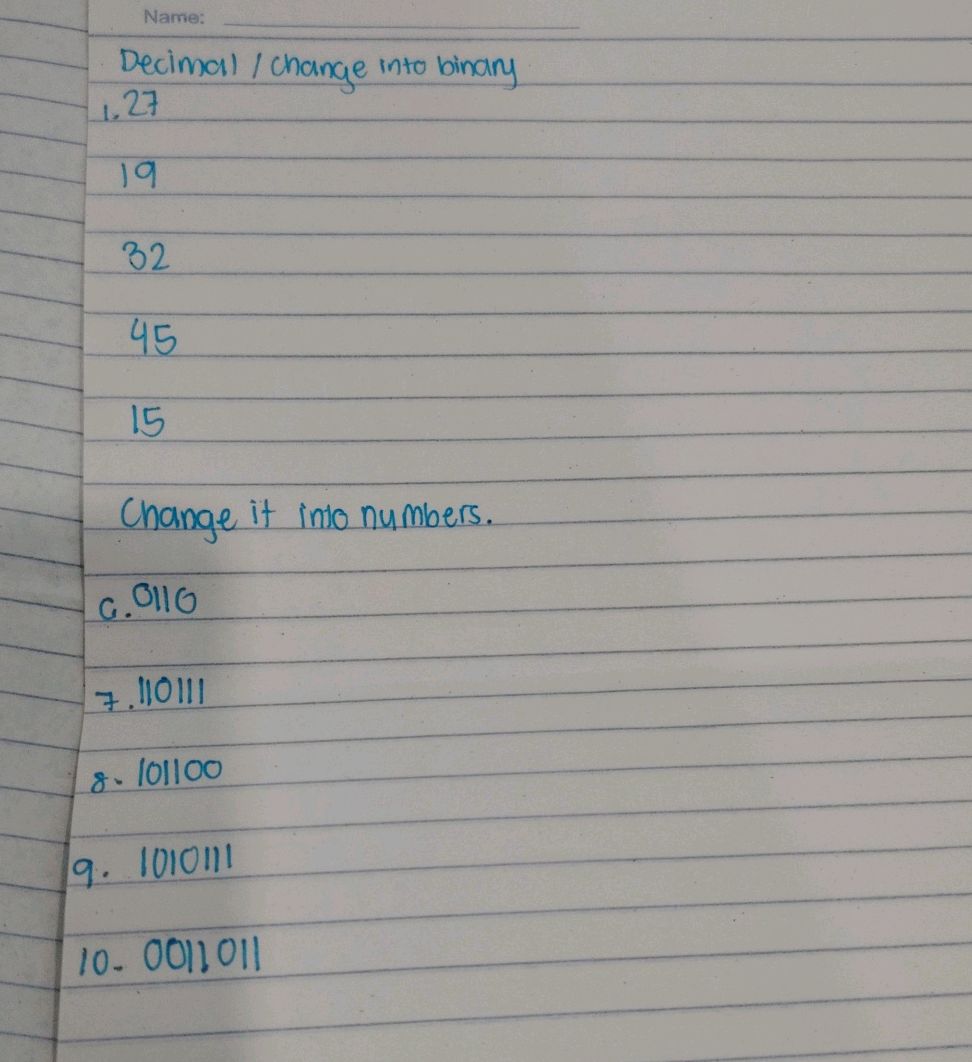 Name:
Decimal / change into binary
1. 27
19
32
45
15
Change it into numbers.
6. 0110
7. 110111
8. 101100
9. 1010111
10. 0011011